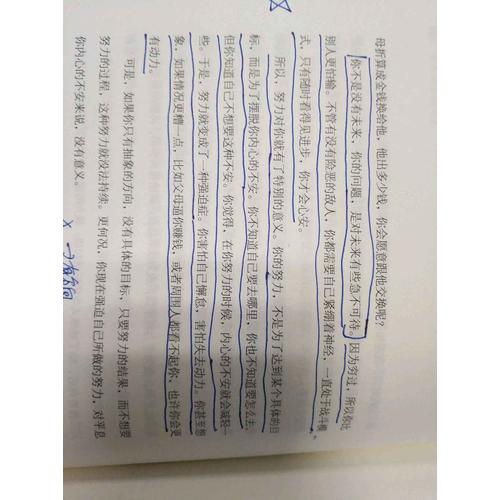 母折算成金钱换给他，他出多少钱，你会愿意跟他交换呢？
你不是没有未来，你的问题，是对未来有些急不可待。因为穷过，所以你比
别人更怕输。不管有没有险恶的敌人，你都需要自己紧绷着神经，一直处于战斗模
式，只有随时看得见进步，你才会心安。
所以，努力对你就有了特别的意义。你的努力，不是为了达到某个具体的目
标，而是为了摆脱你内心的不安。你不知道自己要去哪里，你也不知道要怎么去，
但你知道自己不想要这种不安。你觉得，在你努力的时候，内心的不安就会减轻一
些。于是，努力就变成了一种强迫症。你害怕自己懈怠，害怕失去动力。你甚至想
象，如果情况更糟一点，比如父母逼你赚钱，或者周围人都看不起你，也许你会更
有动力。
可是，如果你只有抽象的方向，没有具体的目标，只要努力的结果，而不想要
努力的过程，这种努力就没法持续。更何况，你现在强迫自己所做的努力，对平息
你内心的不安来说，没有意义。